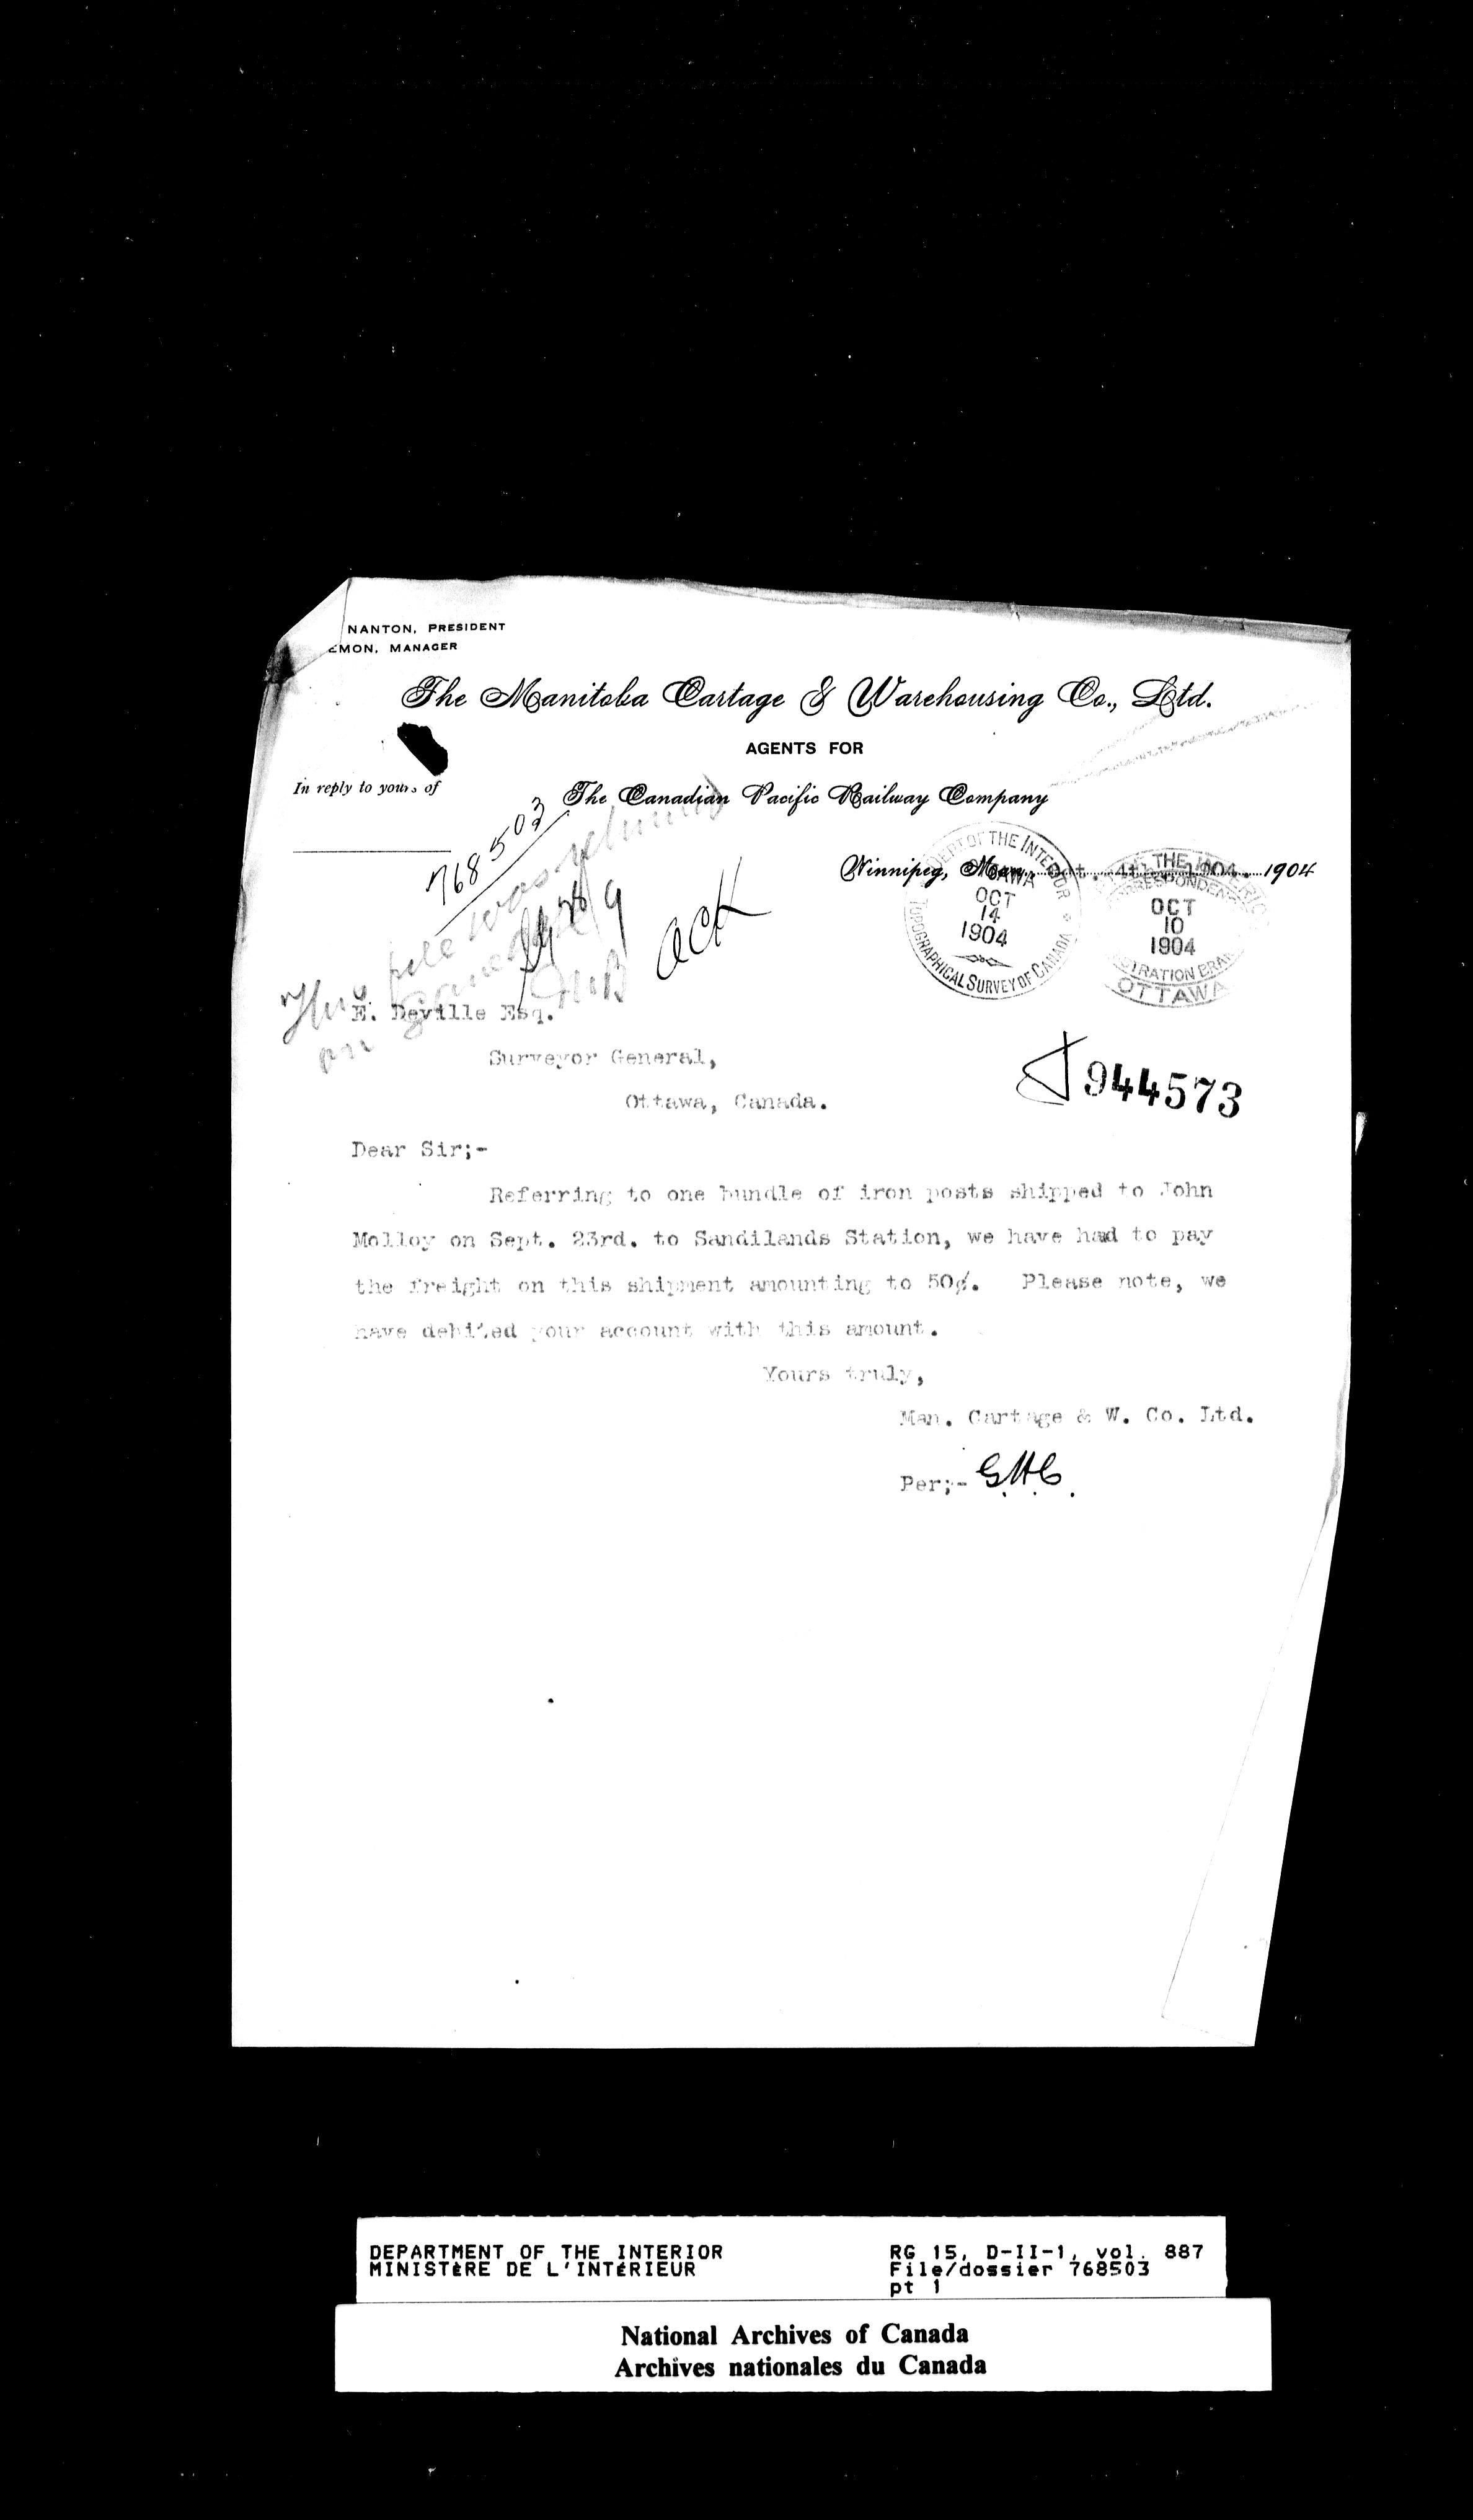 NANTON, PRESIDENT
EMON, MANAGER
The Manitoba Cartage & Warehousing Co., Ltd.
AGENTS FOR
In reply to yours of
The Canadian Pacific Railway Company
768503
Winnipeg, Man. Oct. 4th 1904. 1904
DEPT OF THE INTERIOR
OTTAWA
OCT
14
1904
TOPOGRAPHICAL SURVEY OF CANADA
THE INTERIOR
CORRESPONDENCE
OCT
10
1904
STRATION BRAN
OTTAWA
This file was returned
on
ack
E. Deville Esq.
Surveyor General,
Ottawa, Canada.
944573
Dear Sir;-
Referring to one bundle of iron posts shipped to John
Molloy on Sept. 23rd. to Sandilands Station, we have had to pay
the freight on this shipment amounting to 50¢. Please note, we
have debited your account with this amount.
Yours truly,
Man. Cartage & W. Co. Ltd.
Per;- G.H.C.
DEPARTMENT OF THE INTERIOR
MINISTÈRE DE L'INTÉRIEUR
RG 15, D-II-1, vol. 887
File/dossier 768503
pt 1
National Archives of Canada
Archives nationales du Canada